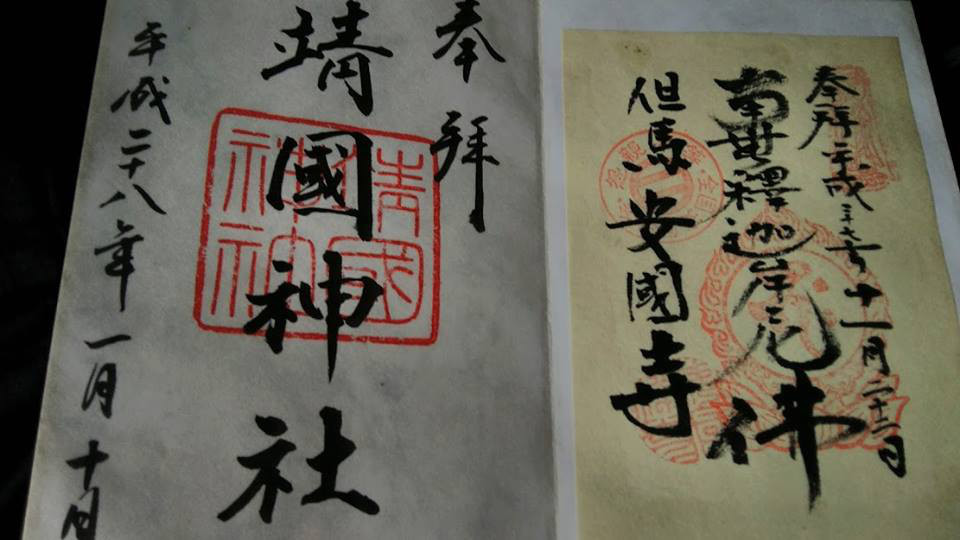 奉拝 平成二七年十一月二十二日
南無釋迦牟尼佛
但馬安國寺
奉拝
靖國神社
平成二十八年一月十日
靖國神社